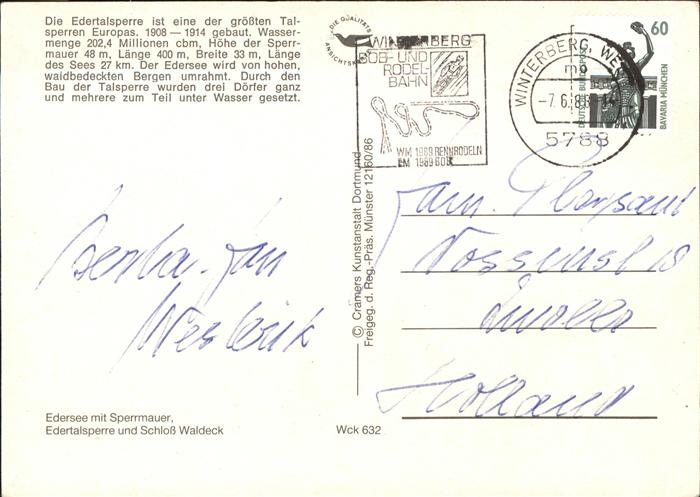 Die Edertalsperre ist eine der größten Tal-
sperren Europas. 1908 — 1914 gebaut. Wasser-
menge 202,4 Millionen cbm, Höhe der Sperr-
mauer 48 m, Länge 400 m, Breite 33 m, Länge
des Sees 27 km. Der Edersee wird von hohen,
waldbedeckten Bergen umrahmt. Durch den
Bau der Talsperre wurden drei Dörfer ganz
und mehrere zum Teil unter Wasser gesetzt.
DIE QUALITÄTS
ANSICHTSK
WINTERBERG
BOB- UND
RODEL-
BAHN
WM 1989 RENNRODELN
EM 1989 BOB
WINTERBERG, WE
mb
-7.6.88-14
5788
60
DEUTSCHE BUNDESPOST
BAVARIA MÜNCHEN
Fam.
18
Zwolle
Holland
Jan
© Cramers Kunstanstalt Dortmund
Freigeg. d. Reg.-Präs. Münster 12160/86
Edersee mit Sperrmauer,
Edertalsperre und Schloß Waldeck
Wck 632